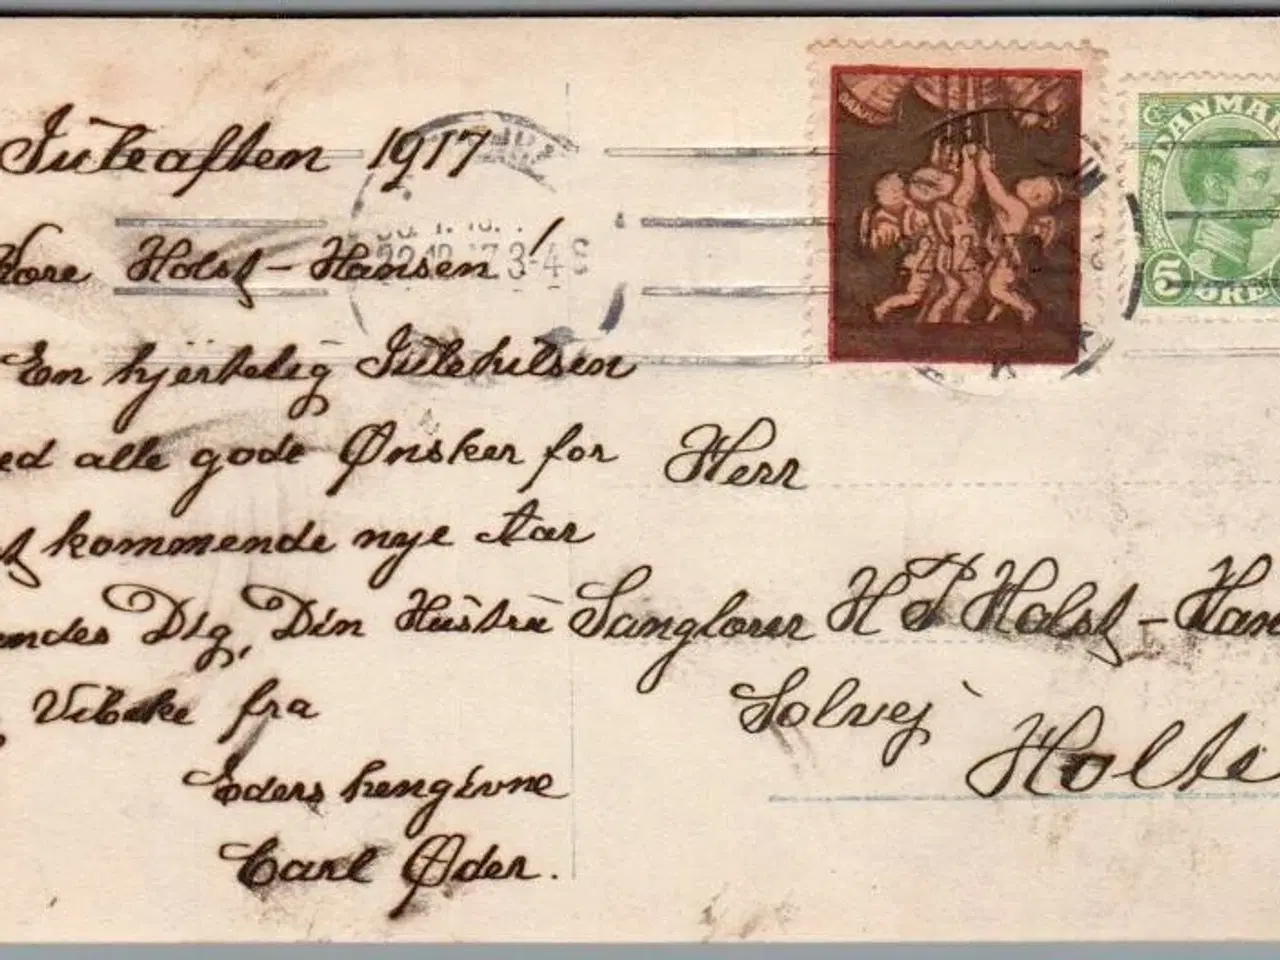 Juleaften 1917
Kære Holst-Hansen!
En hjertelig Julehilsen
ed alle gode Ønsker for
t kommende nye Aar
endes Dig, Din Hustru
Vibeke fra
Eders hengivne
Carl Øder.
22.12.17 3-4 S
DANMA
5 ØRE
Herr
Sanglærer H P Holst-Han
Solvej
Holte